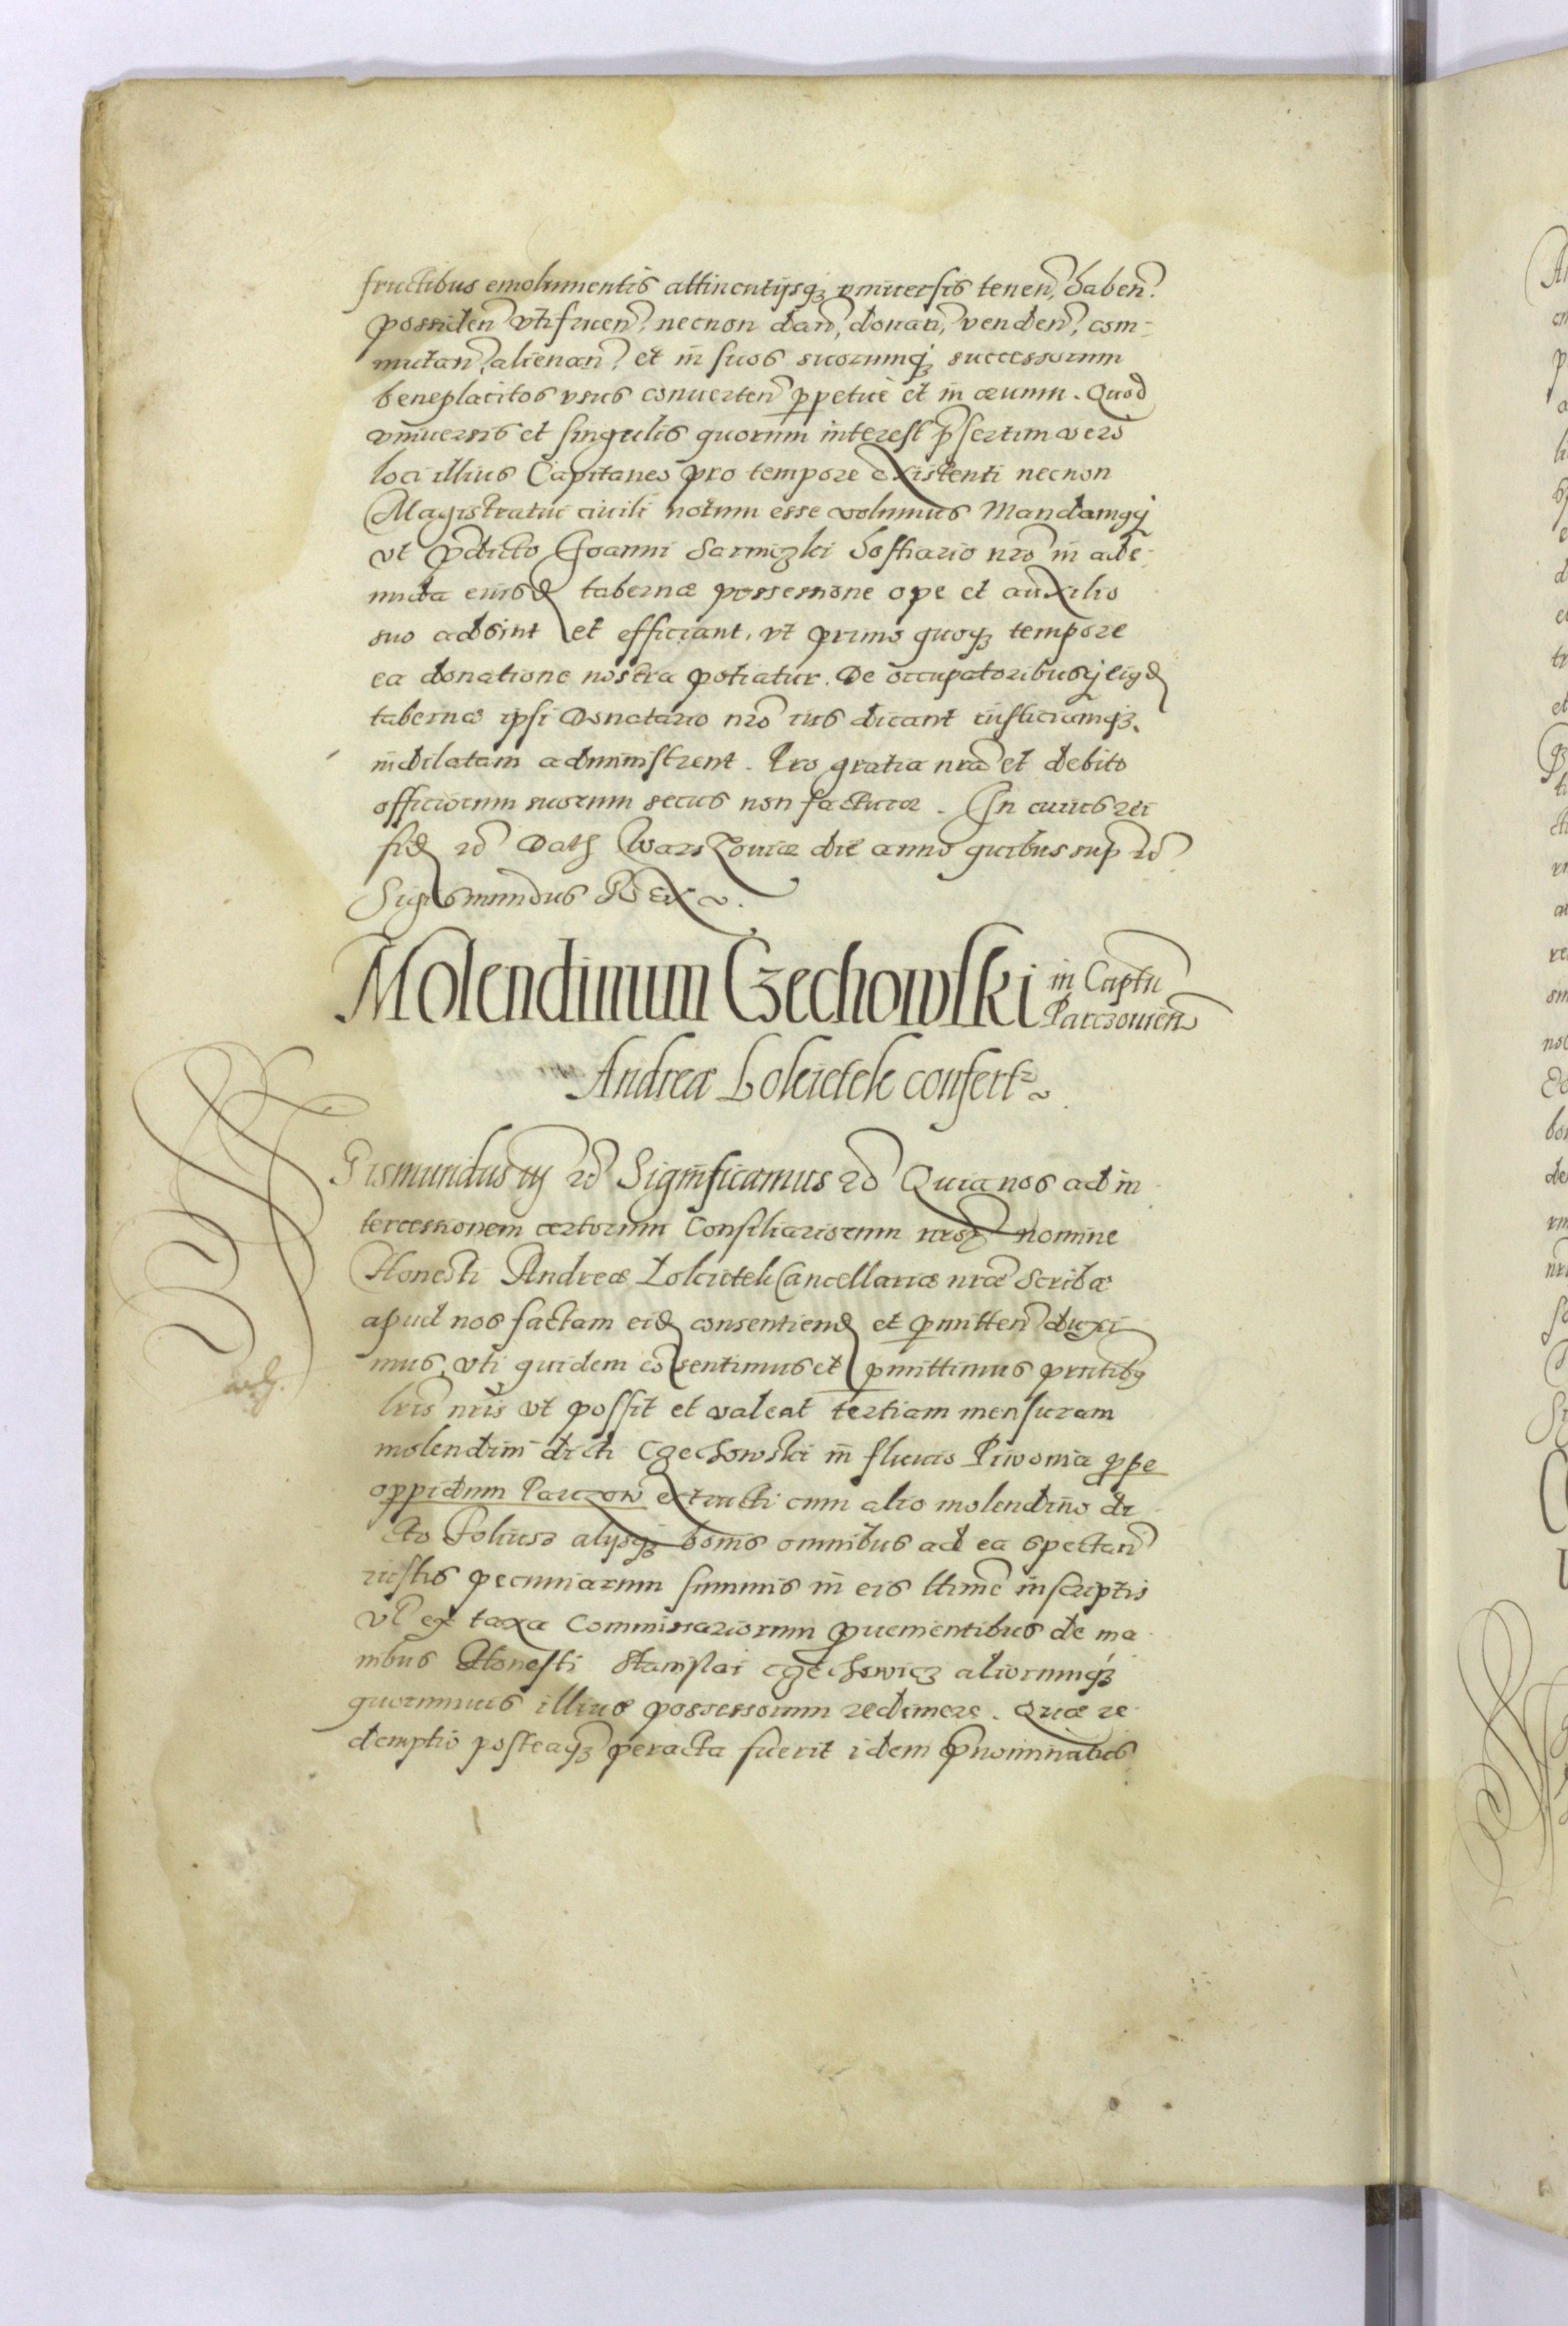 fructibus emolumentis attinentijsq₃ vniuersis tenen̄, haben̄.
possiden̄ vtifruen̄, necnon dan̄, donan̄, venden̄, com-
mutan̄, alienan̄, et in suos suorumq₃ successorum
beneplacitos vsus conuerten̄ ꝑpetue et in æuum. Quod
vniuersis et singulis quorum interest p̄sertim vero
loci illius Capitaneo pro tempore existenti necnon
Magistratui ciuili notum esse volumus Mandamq₃
vt p̄dicto Joanni hostiario nr̄o in ade-
nuda eiusd tabernæ possessione ope et auxilio
suo adsint et efficiant, vt primo quoq₃ tempore
ea donatione nostra potiatur. De occupatoribusq₃ eiqd
tabernæ ipsi Donatario nr̄o ius dicant iusticiamq₃
indilatam administrent. Pro gratia nrā et debito
officiorum suorum secus non facturæ. In cuius rei
fid ꝛc̄ Dat Warszouiæ die anno quibus sup ꝛc̄
Sigismundus Rex.
Molendinum Czechowski in Captu
Parczouien̄
Andreæ Lokietek confert
Gismundus iij ꝛc̄ Significamus ꝛc̄ Quia nos ad in-
tercessionem certorum Consiliariorum nrōꝝ nomine
Honesti Andreæ Lokietek Cancellariæ nrǣ Scribæ
apud nos factam eid consentiend et ꝑmitten̄ duxi-
mus, vti quidem cōsentimus et ꝑmittimus pn̄tibq₃
lrīs nrīs vt possit et valeat tertiam mensuram
molendini dicti Czechowski in fluuio Piwonia prope
oppidum Parczow extructi cum alio molendino di-
cto alijsq₃ bonis omnibus ad ea spectan̄
iustis pecuniarum summis in eis ltimē inscriptis
vl̄ ex taxa Commissariorum ꝓuenientibus de ma-
nibus Honesti Stanislai Czechowicz aliorumq₃
quorumuis illius possessorum redimere. Quæ re-
demptio posteaq₃ peracta fuerit idem p̄nominatus